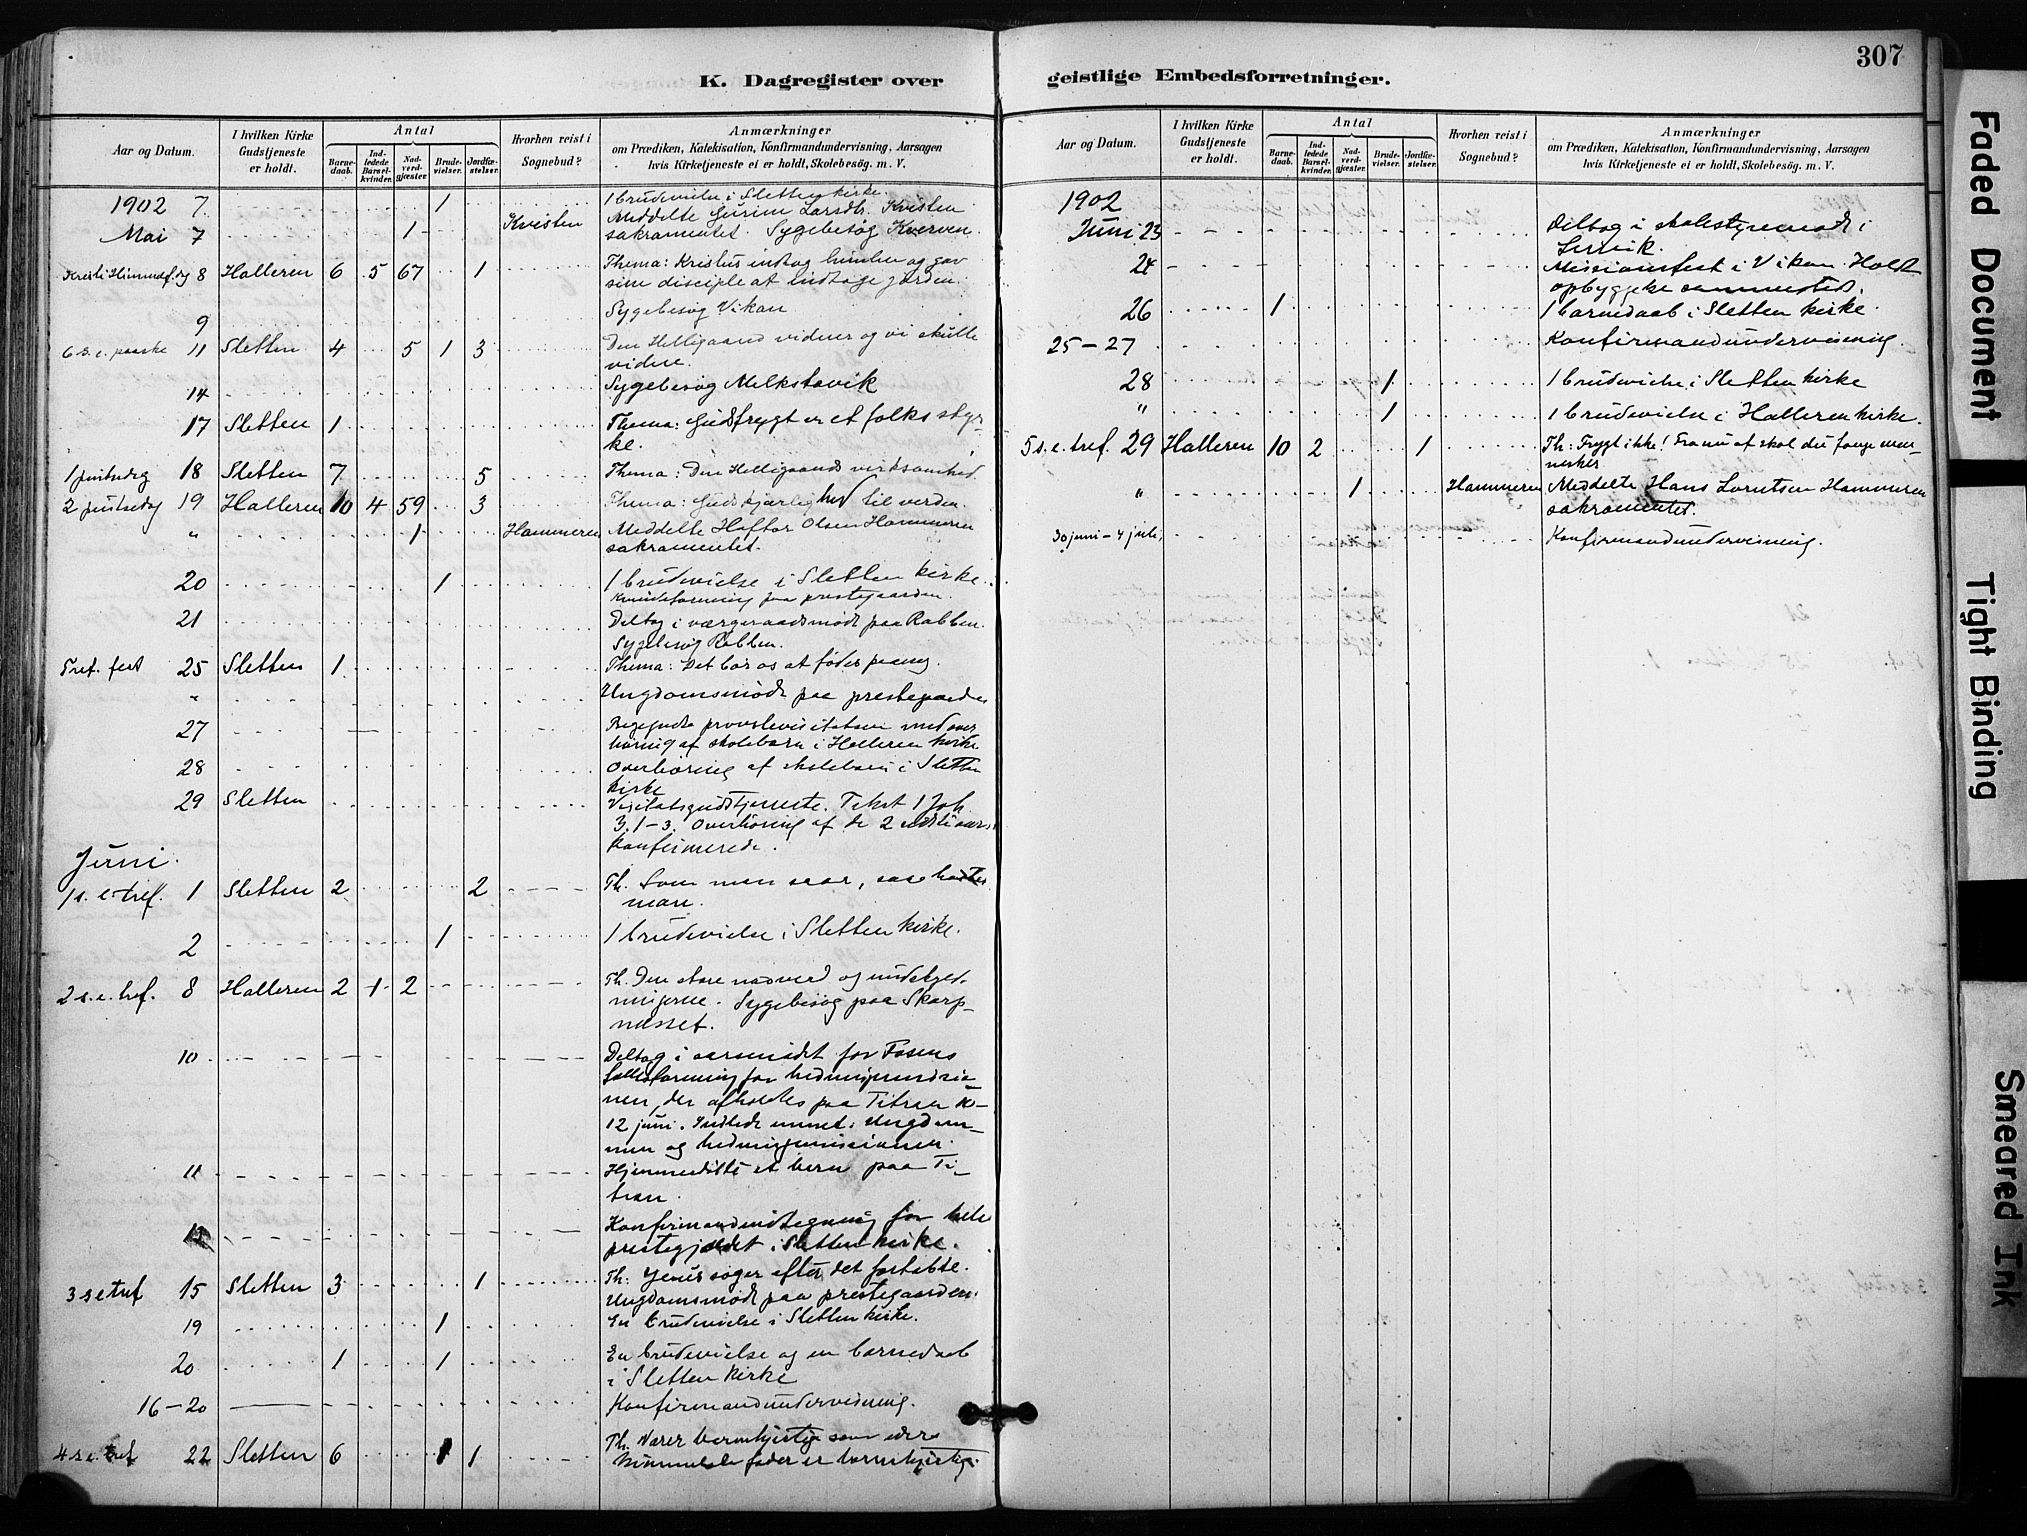 307
K. Dagregister over
geistlige Embedsforretninger.
Aar og Datum.
I hvilken Kirke Gudstjeneste er holdt.
Antal
Barnedaab.
Indledede Barselkvinder.
Nadverdgjæster.
Brudevielser.
Jordfæstelser.
Hvorhen reist i Sognebud?
Anmærkninger
om Prædiken, Katekisation, Konfirmandundervisning, Aarsagen
hvis Kirketjeneste ei er holdt, Skolebesøg. m. V.
1902 7. 1 1 brudevielse i Sletten kirke.
Mai 7 1 Kvisten Meddelte Larsdtr. Kvisten
sakramentet. Sygebesøg Kverven.
Kristi Himmelf.dg 8 Halleren 6 5 67 1 Thema: Kristus indtog himlen og gav
sine disciple at indtage jorden.
9 Sygebesøg Vikan
6 s. e. paaske 11 Sletten 4 5 1 3 Den Helligaand vidner og vi skulle
vidne.
14 Sygebesøg Melkstavik
17 Sletten 1 Thema: Gudsfrygt er et folks styr-
ke.
1 pintsedag 18 Sletten 7 5 Thema: Den Helligaands virksomhed.
2 pintsedag 19 Halleren 10 4 59 3 Thema: Guds kjærlighed til verden.
" 1 Hammeren Meddelte Haftor Olsen Hammeren
sakramentet.
20 1 1 brudevielse i Sletten kirke.
Kvindeforening paa prestegaarden.
21 Deltog i værgeraadsmøde paa Rabben.
Sygebesøg Rabben.
Tref. fest 25 Sletten 1 Thema: Det bør os at fødes paany.
" Ungdomsmøde paa prestegaarden
27 Begyndte provstevisitatsen med over
høring af skolebørn i Halleren kirke
28 Overhøring af skolebørn i Sletten
kirke
29 Sletten Visitatsgudstjeneste. Tekst 1 Joh
3. 1-3. Overhøring af de 2 sidste aars
konfirmerede.
Juni.
1 s. e. tref. 1 Sletten 2 2 Th. Som man saar, saa høster
man.
2 1 1 brudevielse i Sletten kirke.
2 s. e. tref. 8 Halleren 2 1 2 Th. Den store nadverd og undskyld-
ningerne. Sygebesøg paa Skarp-
næsset.
10 Deltog i aarsmødet for Fosens
fællesforening for hedningemissio-
nen, der afholdtes paa Titran 10-
12 juni. Indledte emnet: Ungdom-
men og hedningemissionen.
11 Hjemmedøbte et barn paa Ti-
tran.
Konfirmandindtegning for hele
prestegjældet i Sletten kirke.
3 s e tref 15 Sletten 3 1 Th: Jesus søger efter det fortabte.
Ungdomsmøde paa prestegaarden.
19 1 En brudevielse i Sletten kirke.
20 1 1 En brudevielse og en barnedaab
i Sletten kirke
16-20 Konfirmandundervisning.
4 s e. tref 22 Sletten 6 1 1 Th. Værer barmhjertige som eders
himmelske fader er barmhjertig.
Aar og Datum.
I hvilken Kirke Gudstjeneste er holdt.
Antal
Barnedaab.
Indledede Barselkvinder.
Nadverdgjæster.
Brudevielser.
Jordfæstelser.
Hvorhen reist i Sognebud?
Anmærkninger
om Prædiken, Katekisation, Konfirmandundervisning, Aarsagen
hvis Kirketjeneste ei er holdt, Skolebesøg. m. V.
1902
Juni 23 Deltog i skolestyremøde i
24 Missionsfest i Vikan. Holdt
opbyggelse sammesteds.
26 1 1 barnedaab i Sletten kirke.
25-27 Konfirmandundervisning
28 1 1 brudevielse i Sletten kirke
" 1 1 brudevielse i Halleren kirke.
5 s. e. tref. 29 Halleren 10 2 1 Th: Frygt ikke! Fra nu af skal du fange men-
nesker
" 1 Hammeren Meddelte Hans Lorntsen Hammeren
sakramentet.
30 juni - 4 juli, Konfirmandundervisning.
Faded Document
Tight Binding
Smeared Ink